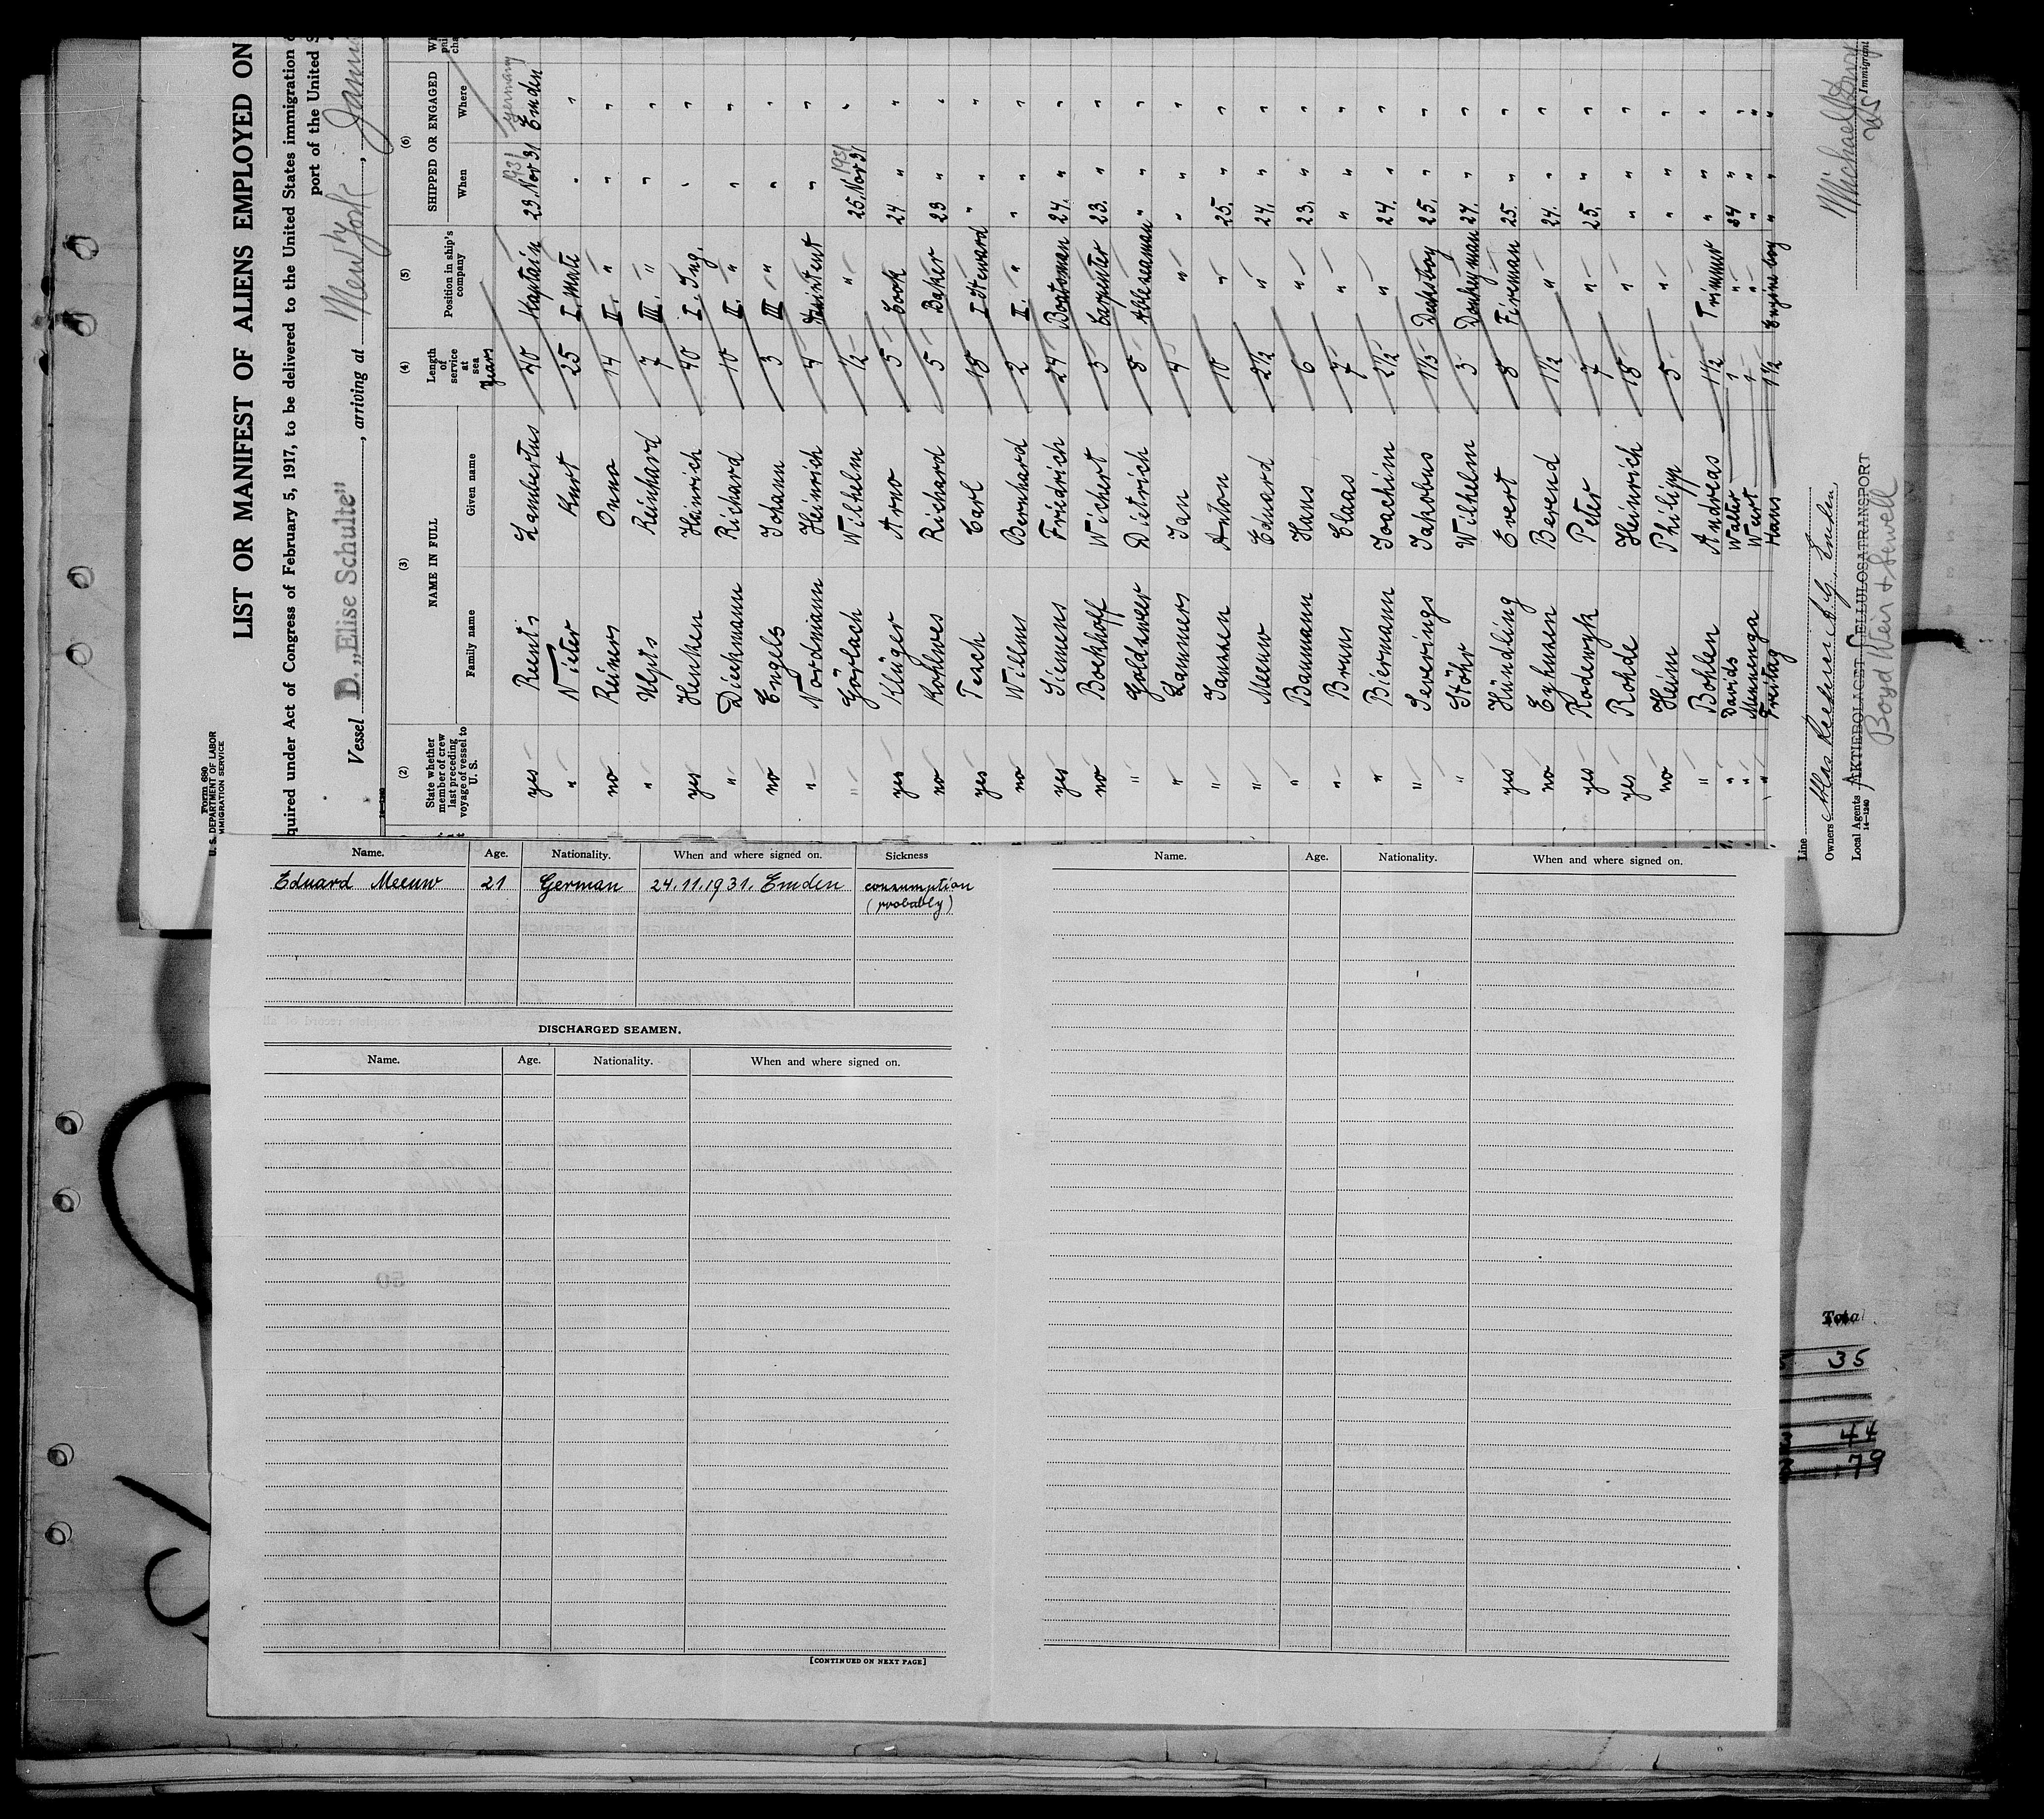 Form 680
U. S. DEPARTMENT OF LABOR
IMMIGRATION SERVICE
LIST OR MANIFEST OF ALIENS EMPLOYED ON
quired under Act of Congress of February 5, 1917, to be delivered to the United States immigration
port of the United S
Vessel D. „Elise Schulte", arriving at New York,
(2) (3) (4) (5) (6)
State whether member of crew last preceding voyage of vessel to U. S. NAME IN FULL Length of service at sea Position in ship's company SHIPPED OR ENGAGED
Family name Given name Years When Where
1931 Germany
yes Reents Lambertus 40 Kaptain 23. Nov 31 Emden
" Nieter Kurt 25 I. Mate " "
no Reiners Onno 14 II. " " "
" Ulpts Reinhard 7 III. " " "
yes Henken Heinrich 40 I. Ing. " "
" Diekmann Richard 10 II. " " "
no Engels Johann 3 III " " "
" Nordmann Heinrich 4 " "
1931
" Görlach Wilhelm 1/2 " 25. Nov 31 "
yes Klüger Arno 5 Cook 24. " "
no Kohlwes Richard 5 Baker 23 " "
yes Tesch Carl 18 I Steward " " "
no Willms Bernhard 2 II. " " "
yes Siemens Friedrich 24 Boatsman 24. " "
no Boekhoff Wichert 5 Carpenter 23. " "
" Goldsweer Dietrich 8 Ableseaman " " "
" Lammers Jan 4 " " " "
" Janssen Anton 10 " 25. " "
" Meeuw Eduard 2 1/2 " 24. " "
" Baumann Hans 6 " 23. " "
" Bruns Claas 7 " " " "
" Biermann Joachim 2 1/2 " 24. " "
" Severings Jakobus 1 1/3 Decksboy 25. " "
" Stöhr Wilhelm 3 Donkeyman 24. " "
yes Hündling Evert 8 Fireman 25. " "
no Eyhusen Berend 1 1/2 " 24. " "
yes Rodewyk Peter 7 " 25. " "
yes Rohde Heinrich 18 " " " "
no Heim Philipp 5 " " " "
" Bohlen Andreas 1 1/2 Trimmer " " "
" Davids Walter 1 " 24 " "
" Menenga 1 " " " "
" Freitag Hans 1 1/2 Engineboy " " "
Line
Owners Atlas Reederei A.G. Emden
Local Agents AKTIEBOLAGET CELLULOSATRANSPORT
14—1240
Boyd Weir & Sewell
Immigrant
Name. Age. Nationality. When and where signed on. Sickness
Eduard Meeuw 21 German 24.11.1931. Emden consumption
(probably)
DISCHARGED SEAMEN.
Name. Age. Nationality. When and where signed on.
[CONTINUED ON NEXT PAGE]
Name. Age. Nationality. When and where signed on.
Total
35
44
79